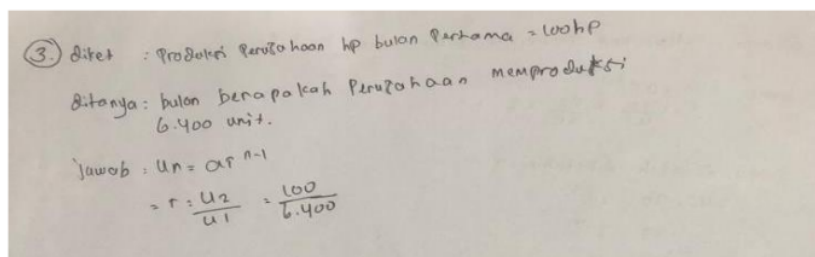 3. diket : Produksi Perusahaan hp bulan Pertama = 100 hp
ditanya : bulan berapakah Perusahaan memproduksi
6.400 unit.
jawab : Un = ar^n-1
= r = U2/U1 = 100/6.400